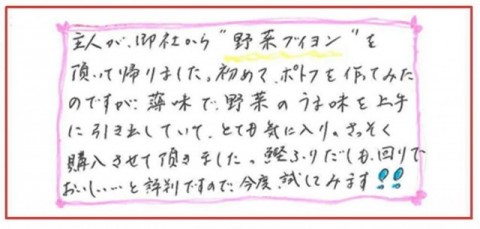 主人が、御社から“野菜ブイヨン”を
頂いて帰りました。初めて、ポトフを作てみた
のですが、薄味で、野菜のうま味を上手
に引き出していて、とても気に入り。さっそく
購入させて頂きました。鰹ふりだしも、回りで
おいしい…と評判ですので、今度、試してみます!!